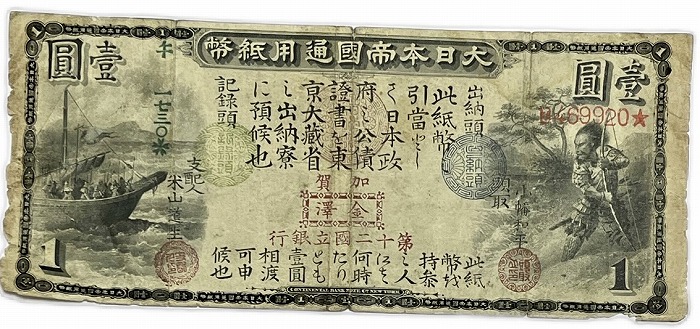 大日本帝國通用紙幣
壹圓
壹圓
出納頭
此紙幣
引當とし
て日本政
府に公債
證書を東
京大藏省
に預候也
記錄頭
69920★
午 一七三〇
頭取
支配人
米山道生
加賀
金澤
第十二國立銀行
此紙
幣を
持参
の人
には
何時
たり
とも
壹圓
相渡
可申
候也
1
1
CONTINENTAL BANK NOTE Co NEW YORK